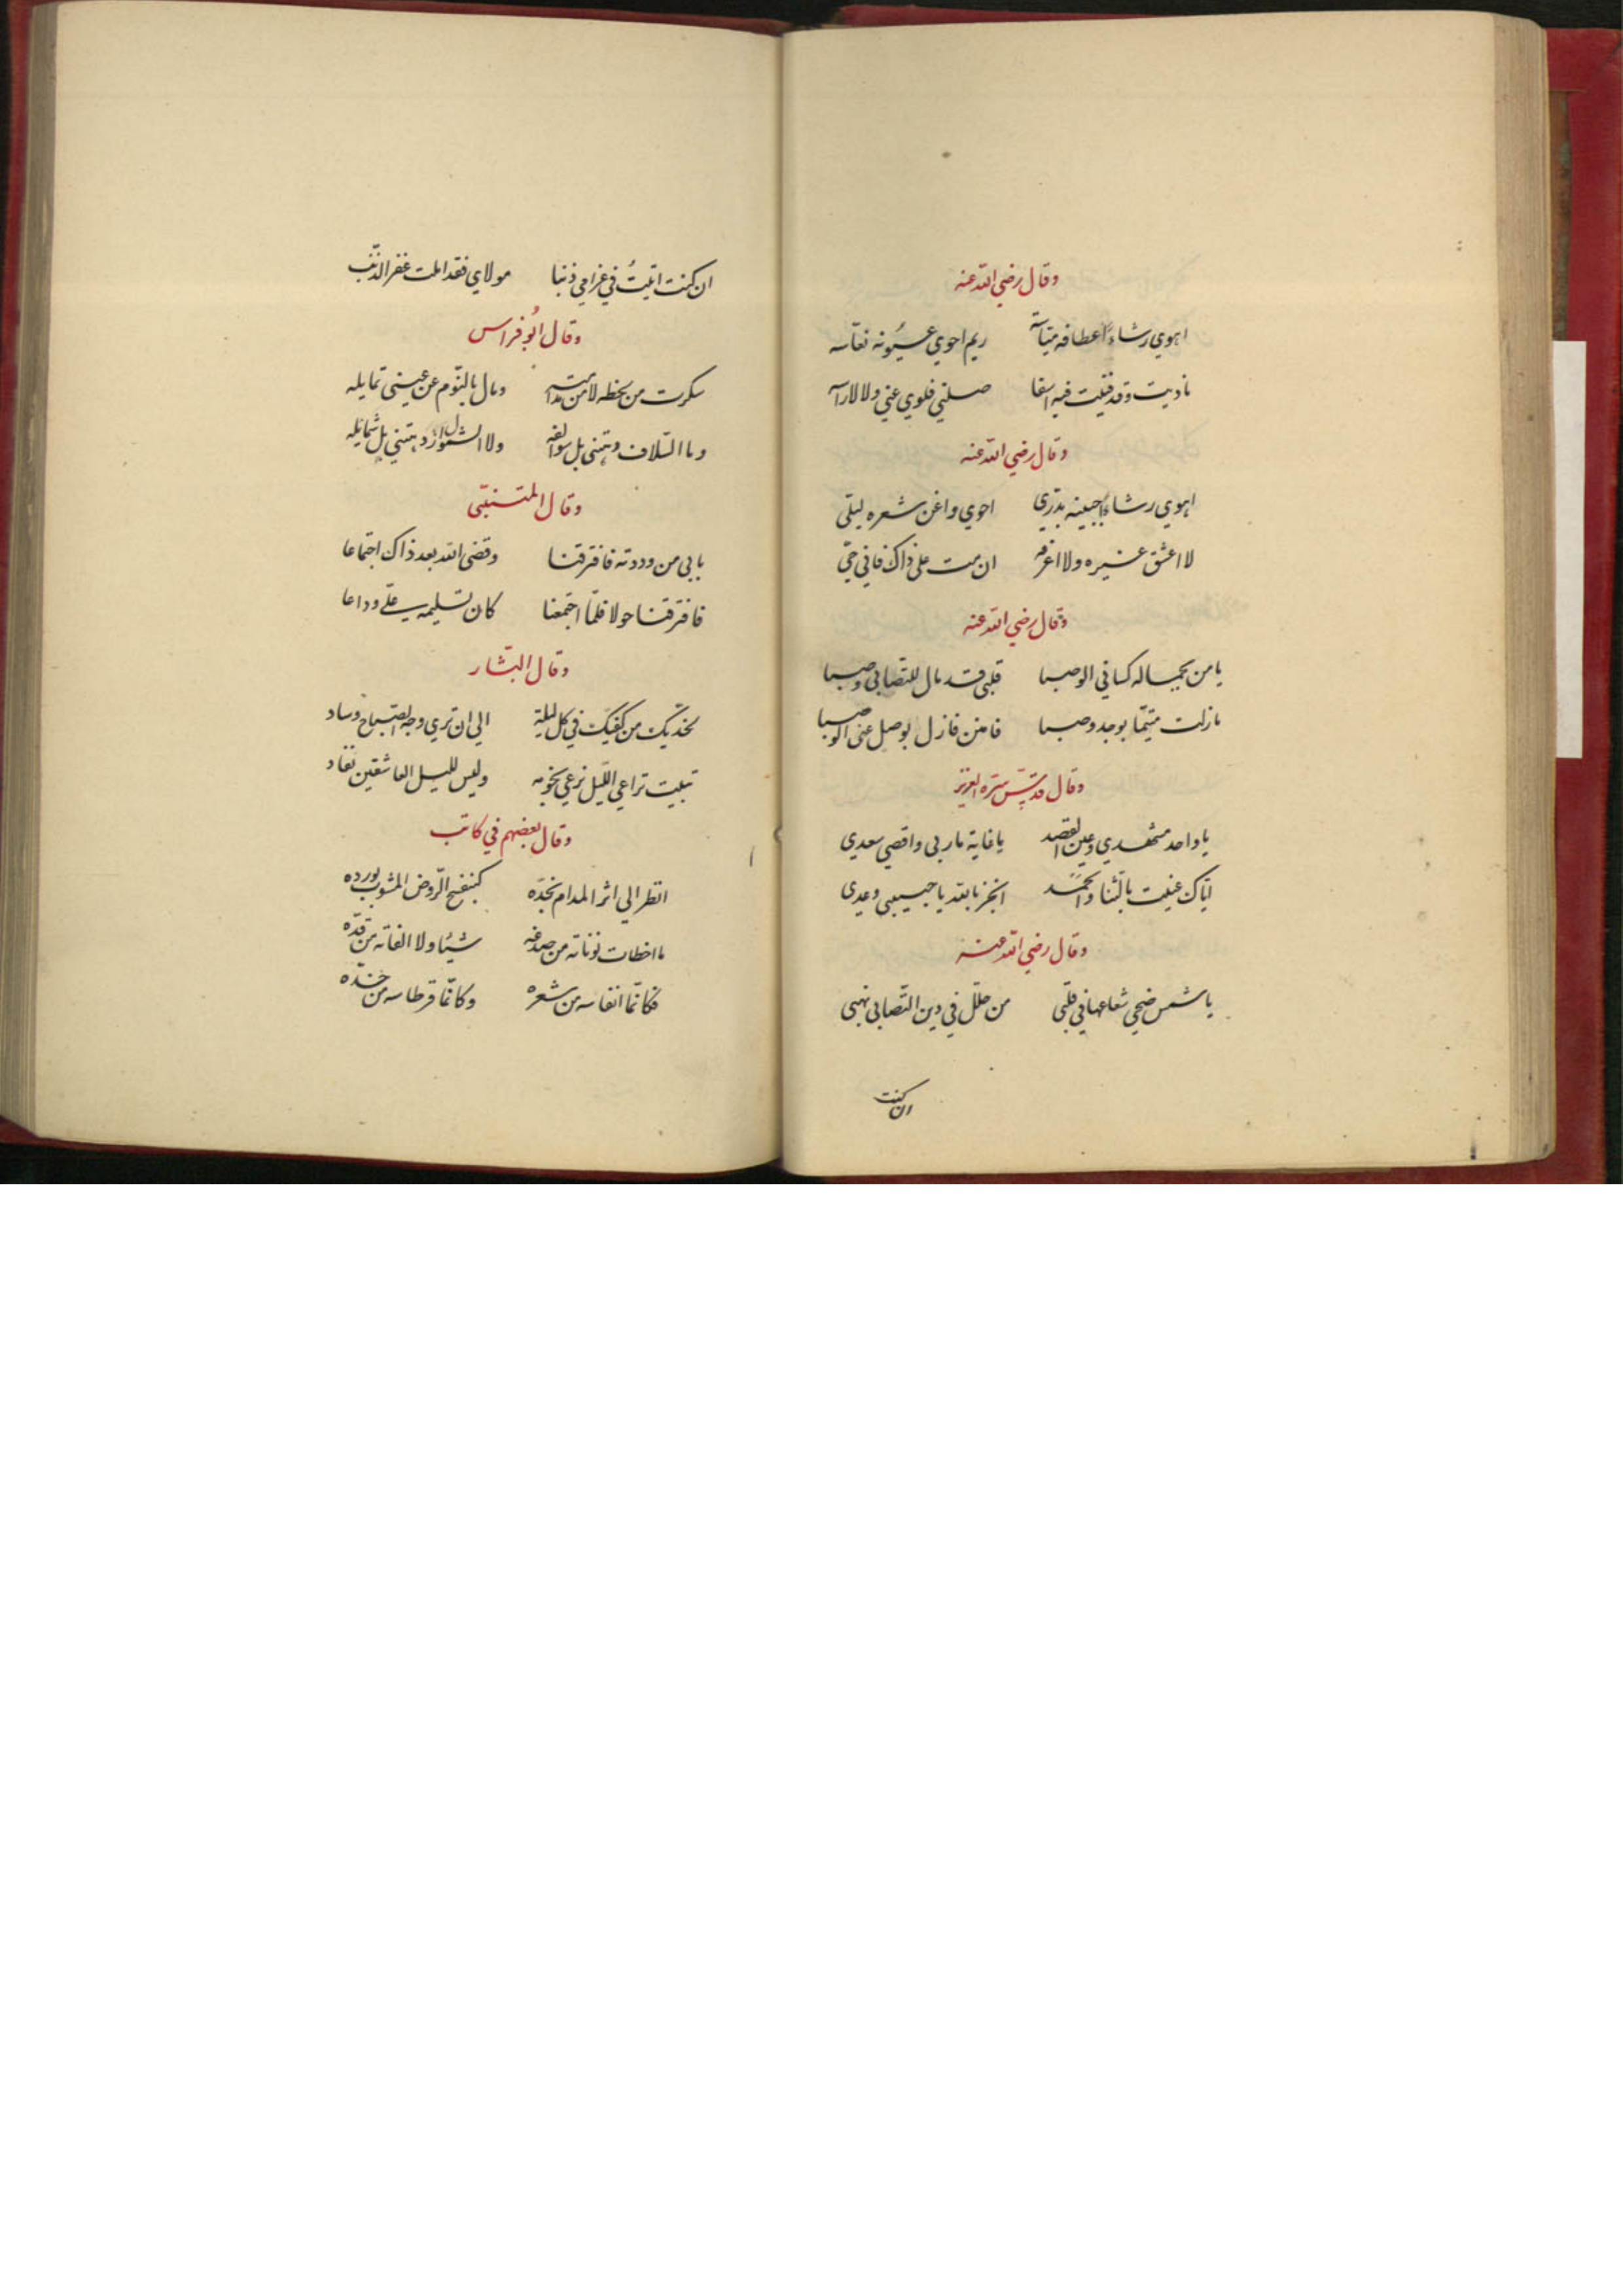 وقال رضي الله عنه
اهوي رشاء اعطافه مياسه ريم احوي عيونه نعاسه
ناديت وقد فنيت فيه اسفا صلني فلوي عني ولا لاراسه
وقال رضي الله عنه
اهوي رشاء جبينه بدري احوي واغن شعره ليلي
لا اعشق غيره ولا اعرفه ان مت علي ذاك فاني حي
وقال رضي الله عنه
يا من بجماله كساني الوصبا قلبي قد مال للتصابي وصبا
مازلت متيما بوجد وصبا فامنن فازل بوصل عني الوصبا
وقال قدس سره العزيز
يا واحد مشهدي وعين القصد يا غاية ماربي واقصي سعدي
اياك عنيت بالثنا والحمد انجز بالله يا حبيبي وعدي
وقال رضي الله عنه
يا شمس ضحي شعاعها في قلبي من حلل في دين التصابي نهبي
ان كنت
ان كنت اتيت في غرامي ذنبا مولاي فقد املت غفر الذنب
وقال ابو فراس
سكرت من لحظه لا من مدامته ومال بالنوم عن عيني تمايله
وما السلاف دهتني بل سوالفه ولا الشمول ازدهتني بل شمايله
وقال المتنبي
بابي من وددته فافترقنا وقضي الله بعد ذاك اجتماعا
فافترقنا حولا فلما اجتمعنا كان تسليمه علي وداعا
وقال البشار
لخديك من كفيك في كل ليلة الي ان تري وجه الصباح وساد
تبيت تراعي الليل ترعي نجومه وليس لليل العاشقين نفاد
وقال بعضهم في كاتب
انظر الي اثر المدام بخده كبنفسج الروض المشوب بورده
ما اخطات نوناته من صدغه شيئا ولا الفاته من قده
فكانما انقاسه من شعره وكانما قرطاسه من خده